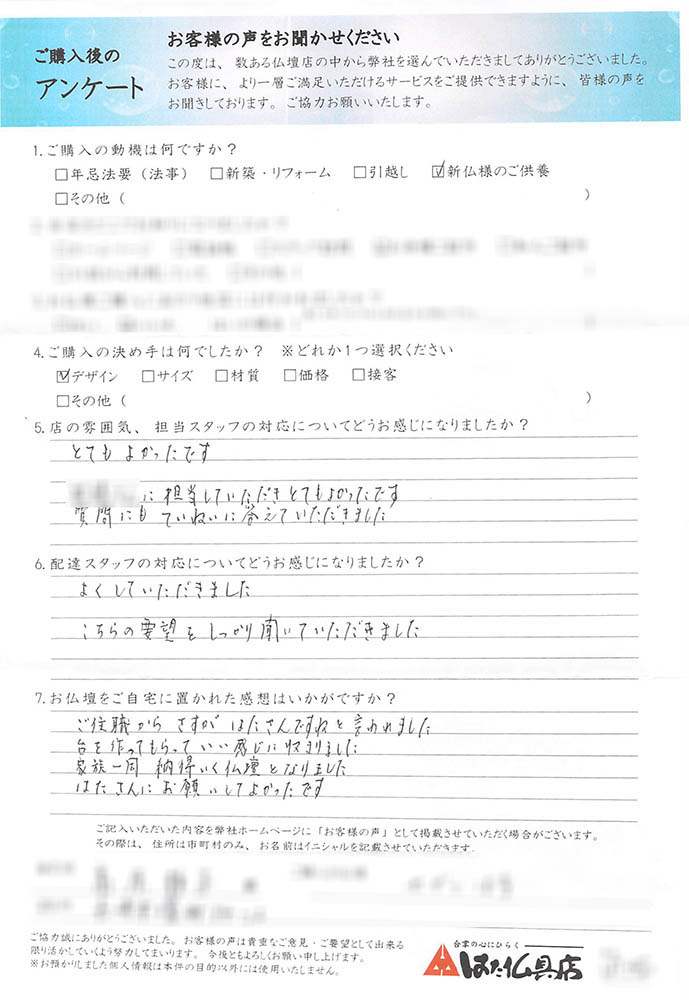 ご購入後の
アンケート
お客様の声をお聞かせください
この度は、数ある仏壇店の中から弊社を選んでいただきましてありがとうございました。
お客様に、より一層ご満足いただけるサービスをご提供できますように、皆様の声を
お聞きしております。ご協力お願いいたします。
1.ご購入の動機は何ですか？
□年忌法要（法事） □新築・リフォーム □引越し ☑新仏様のご供養
□その他（ ）
4.ご購入の決め手は何でしたか？ ※どれか1つ選択ください
☑デザイン □サイズ □材質 □価格 □接客
□その他（ ）
5.店の雰囲気、担当スタッフの対応についてどうお感じになりましたか？
とてもよかったです
に担当していただきとてもよかったです
質問にも ていねいに答えていただきました
6.配達スタッフの対応についてどうお感じになりましたか？
よくしていただきました
こちらの要望をしっかり聞いていただきました
7.お仏壇をご自宅に置かれた感想はいかがですか？
ご住職から さすが はたさんですねと言われました
台を作ってもらって いい感じに収まりました
家族一同 納得いく仏壇となりました
はたさんにお願いしてよかったです
ご記入いただいた内容を弊社ホームページに「お客様の声」として掲載させていただく場合がございます。
その際は、住所は市町村のみ、お名前はイニシャルを記載させていただきます。
ご協力誠にありがとうございました。お客様の声は貴重なご意見・ご要望として出来る
限り活かしていくよう努力してまいります。今後ともよろしくお願い申し上げます。
※お預かりしました個人情報は本件の目的以外には使用いたしません。
合掌の心にひらく
はた仏具店